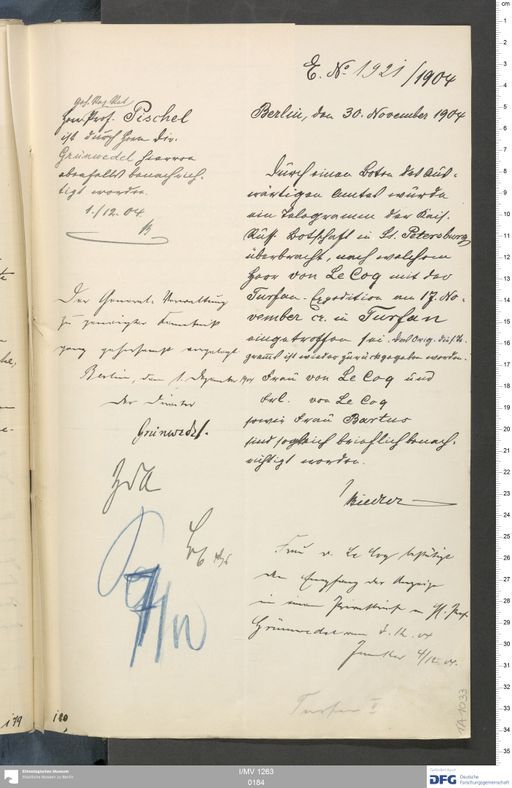 E. No 1921/1904
Berlin, den 30. November 1904
Durch einen Boten des Aus-
wärtigen Amtes wurde
ein Telegramm der Kais.
Russ. Botschaft in St. Petersburg
überbracht, nach welchem
Herr von Le Coq mit der
Turfan-Expedition am 17. No-
vember cr. in Turfan
eingetroffen sei. Das Orig. des Tele-
gramms ist wieder zurückgegeben worden.
Frau von Le Coq und
Frl. von Le Coq
sowie Frau Bartus
sind sogleich brieflich benach-
richtigt worden.
Geh. Reg. Rat
Herr Prof. Pischel
ist durch Herrn Dir.
Grünwedel hiervon
ebenfalls benachrich-
tigt worden.
1./12.04
Der General-Verwaltung
zu geneigter Kenntnis
ganz gehorsamst vorgelegt.
Berlin, den 1. Dezember
Der Direktor
Grünwedel.
ZdA
Frau v. Le Coq bestätigt
den Empfang der Anzeige
in einem Privatbrief a. H. Prof.
Grünwedel vom 12.04
4/12.04.
Turfan II
IA 1033
179
180
Ethnologisches Museum
Staatliche Museen zu Berlin
I/MV 1263
0184
gefördert durch
DFG Deutsche
Forschungsgemeinschaft